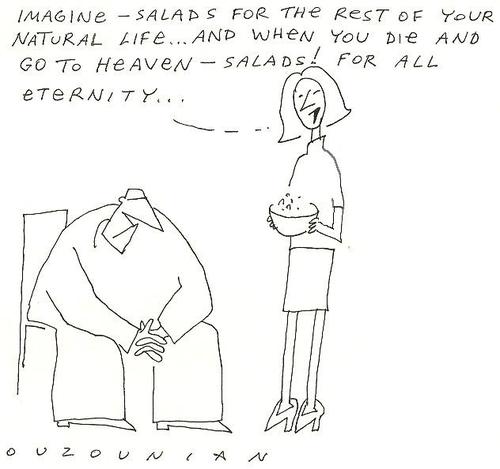 IMAGINE – SALADS FOR THE REST OF YOUR
NATURAL LIFE... AND WHEN YOU DIE AND
GO TO HEAVEN – SALADS! FOR ALL
ETERNITY...
OUZOUNIAN